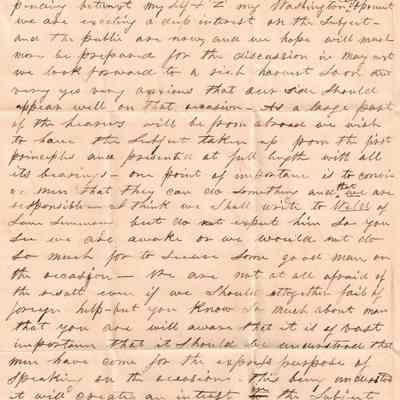 pending betwixt my self & my Washington
we are exciting a deep interest on the subject -
and the public are now, and we hope will much
more be prepared for the discussion in may next
we look forward to a rich harvest soon are
very yes very anxious that our side should
appear well on that occasion - As a large part
of the hearers will be from abroad we wish
to have the subject taken up from the first
principles and presented at full length with all
its bearings - one point of importance is to convin
ce men that they can do something and that are
responsible - I think we shall write to
but do not expect him So you
See we are awake or we would not do
so much for to secure some good man on
the occasion - We are not at all afraid of
the result even if we should altogether fail of
foreign help - but you know as much about man
that you are will aware that it is of vast
importance that it should be understood that
men have come for the express purpose of
speaking on the occasion. this being understood
it will create an interest in the Subject